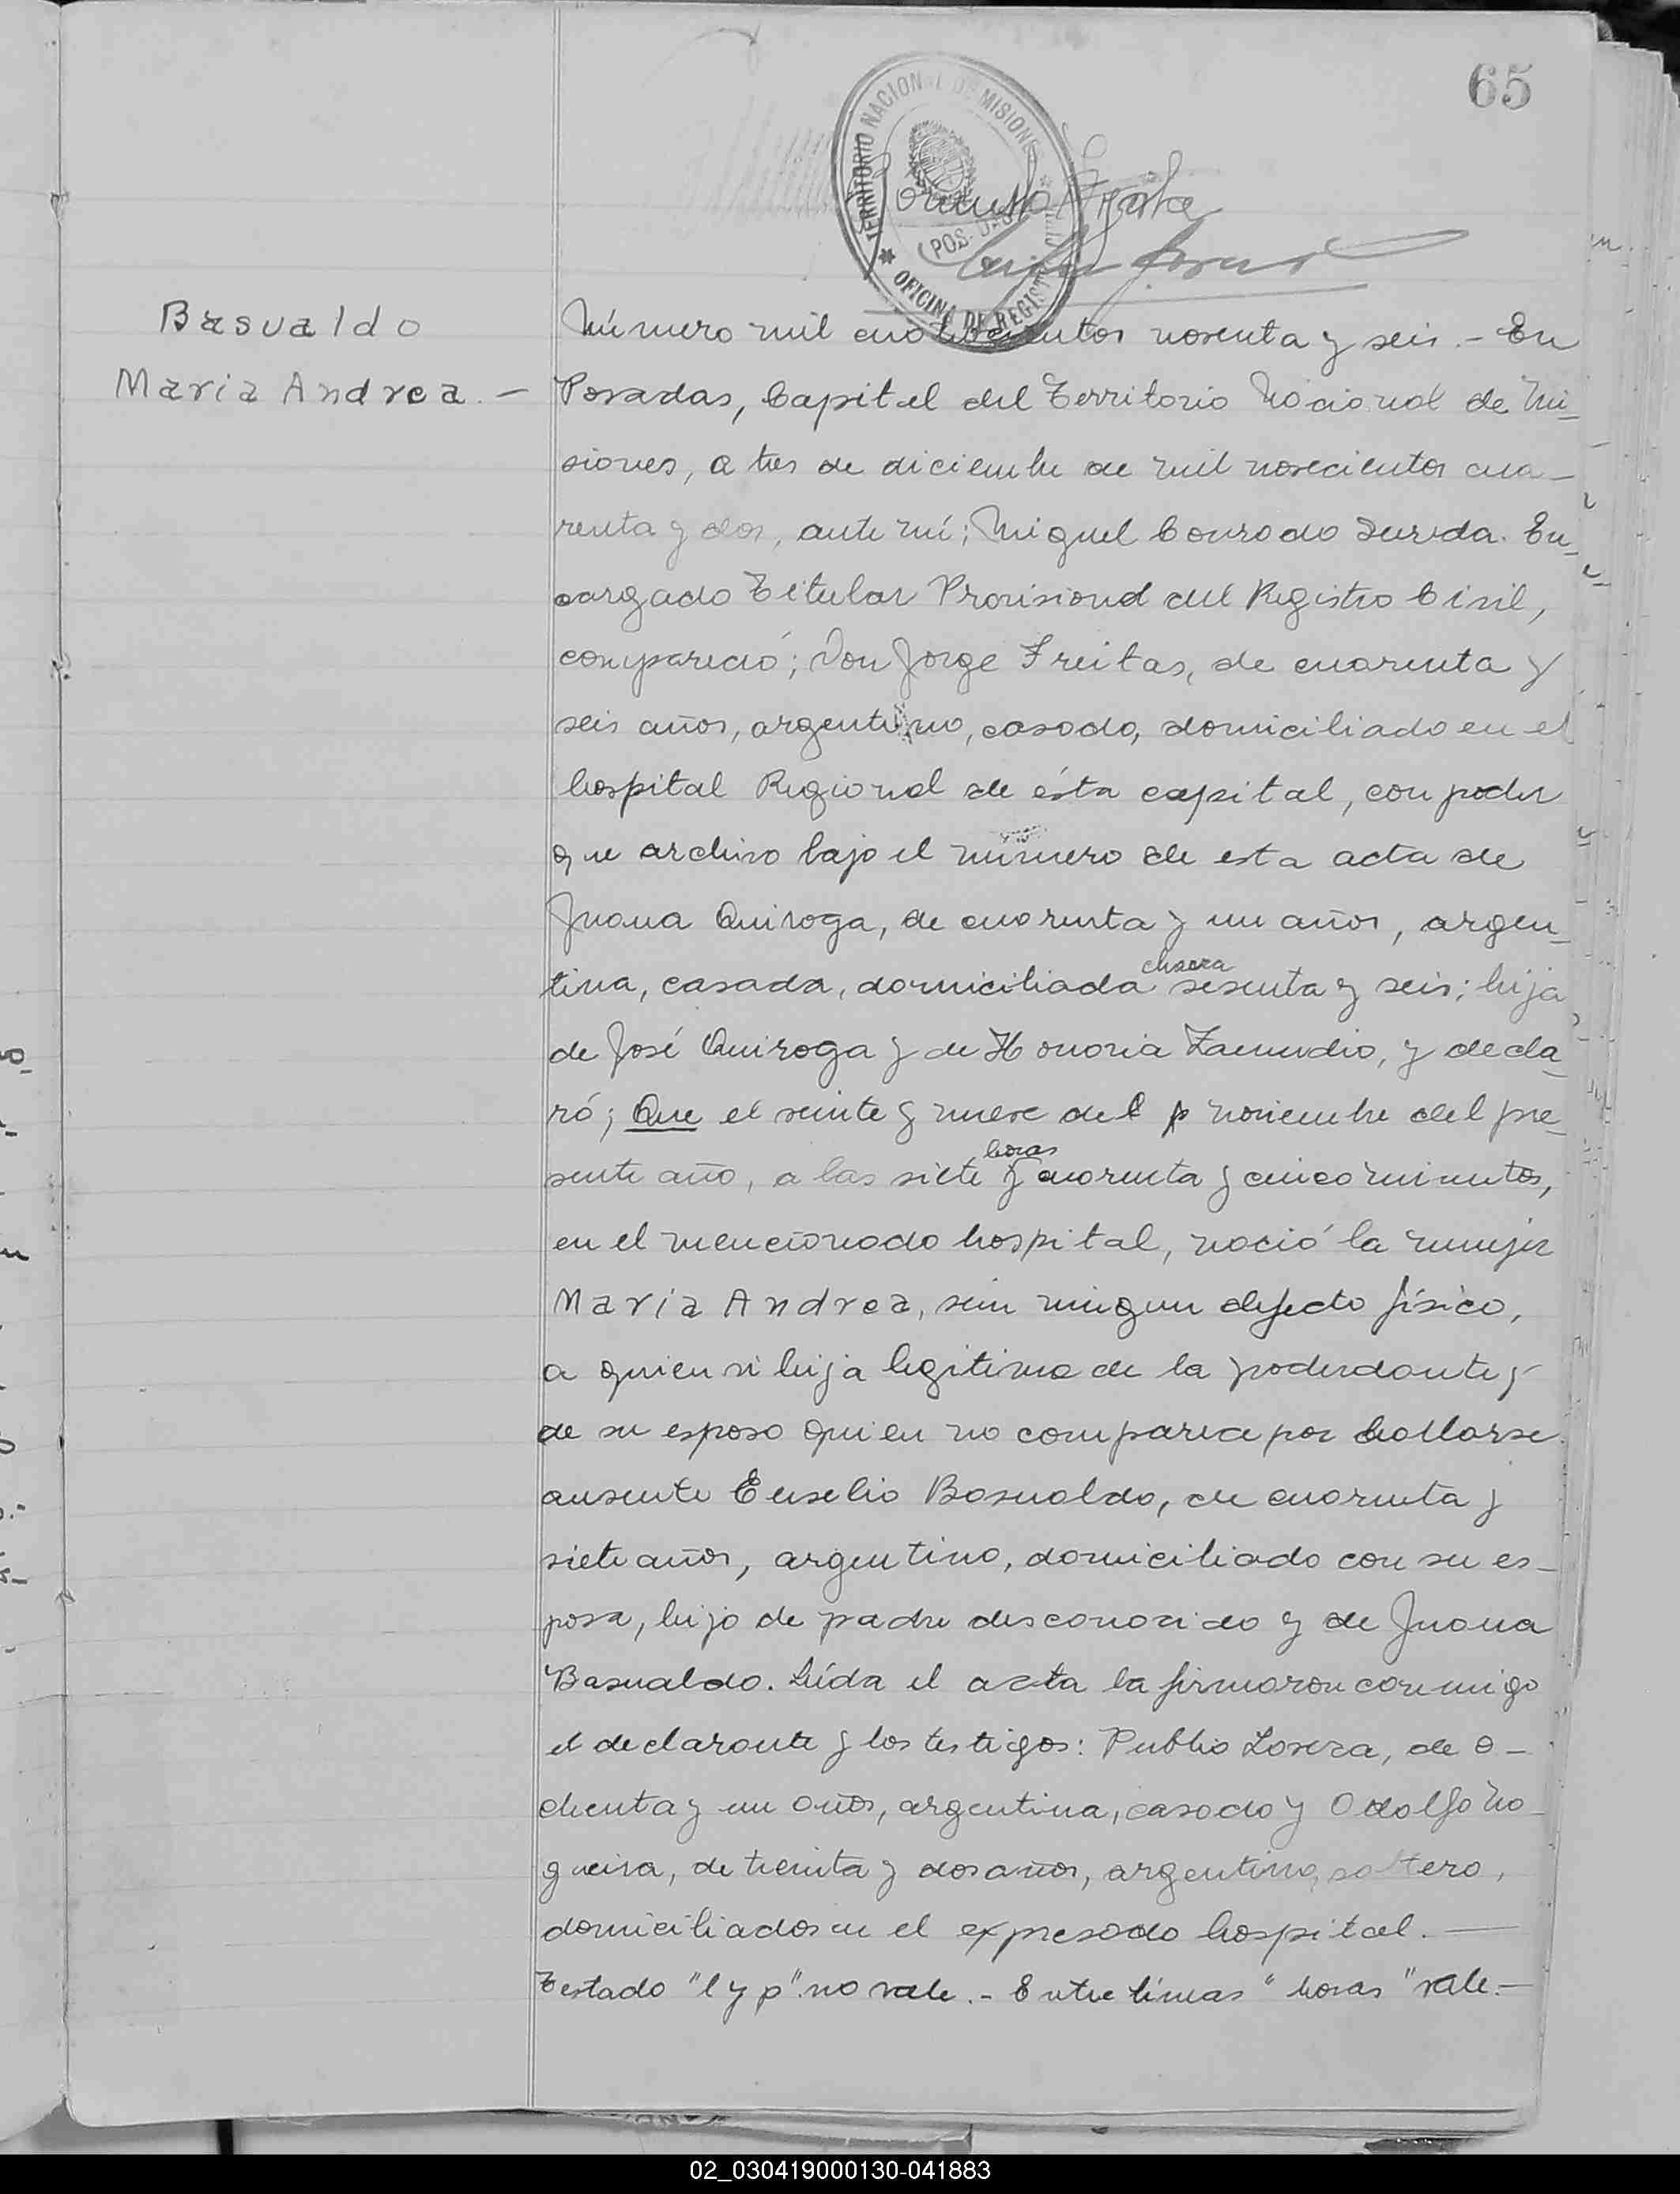 65
TERRITORIO NACIONAL DE MISIONES
POSADAS
OFICINA DE REGISTRO
Basualdo
Maria Andrea. -
Número mil cuatrocientos noventa y seis. - En
Posadas, Capital del Territorio Nacional de Mi_
siones, a tres de diciembre de mil novecientos cua_
renta y dos, ante mí; Miguel Conrado Zurda. En_
cargado Titular Provisional del Registro Civil,
compareció; Don Jorge Freitas, de cuarenta y
seis años, argentino, casado, domiciliado en el
hospital Regional de ésta capital, con poder
que archivo bajo el número de esta acta de
Juana Quiroga, de cuarenta y un años, argen_
tina, casada, domiciliada chacra sesenta y seis; hija
de José Quiroga y de Honoria Zamudio, y decla_
ró; Que el veinte y nueve del p noviembre del pre_
sente año, a las siete horas y cuarenta y cinco minutos,
en el mencionado hospital, nació la mujer
Maria Andrea, sin ningun defecto físico,
a quien vi hija legitima de la poderdante y
de su esposo quien no comparece por hallarse
ausente Eusebio Basualdo, de cuarenta y
siete años, argentino, domiciliado con su es_
posa, hijo de padre desconocido y de Juana
Basualdo. Leída el acta la firmaron conmigo
el declarante y los testigos: Publio Lovera, de o_
chenta y un años, argentina, casado y Odolfo No_
gueira, de treinta y dos años, argentino, soltero,
domiciliados en el expresado hospital. —
Testado "l y p" no vale. - Entre líneas "horas" vale. —
02_030419000130-041883